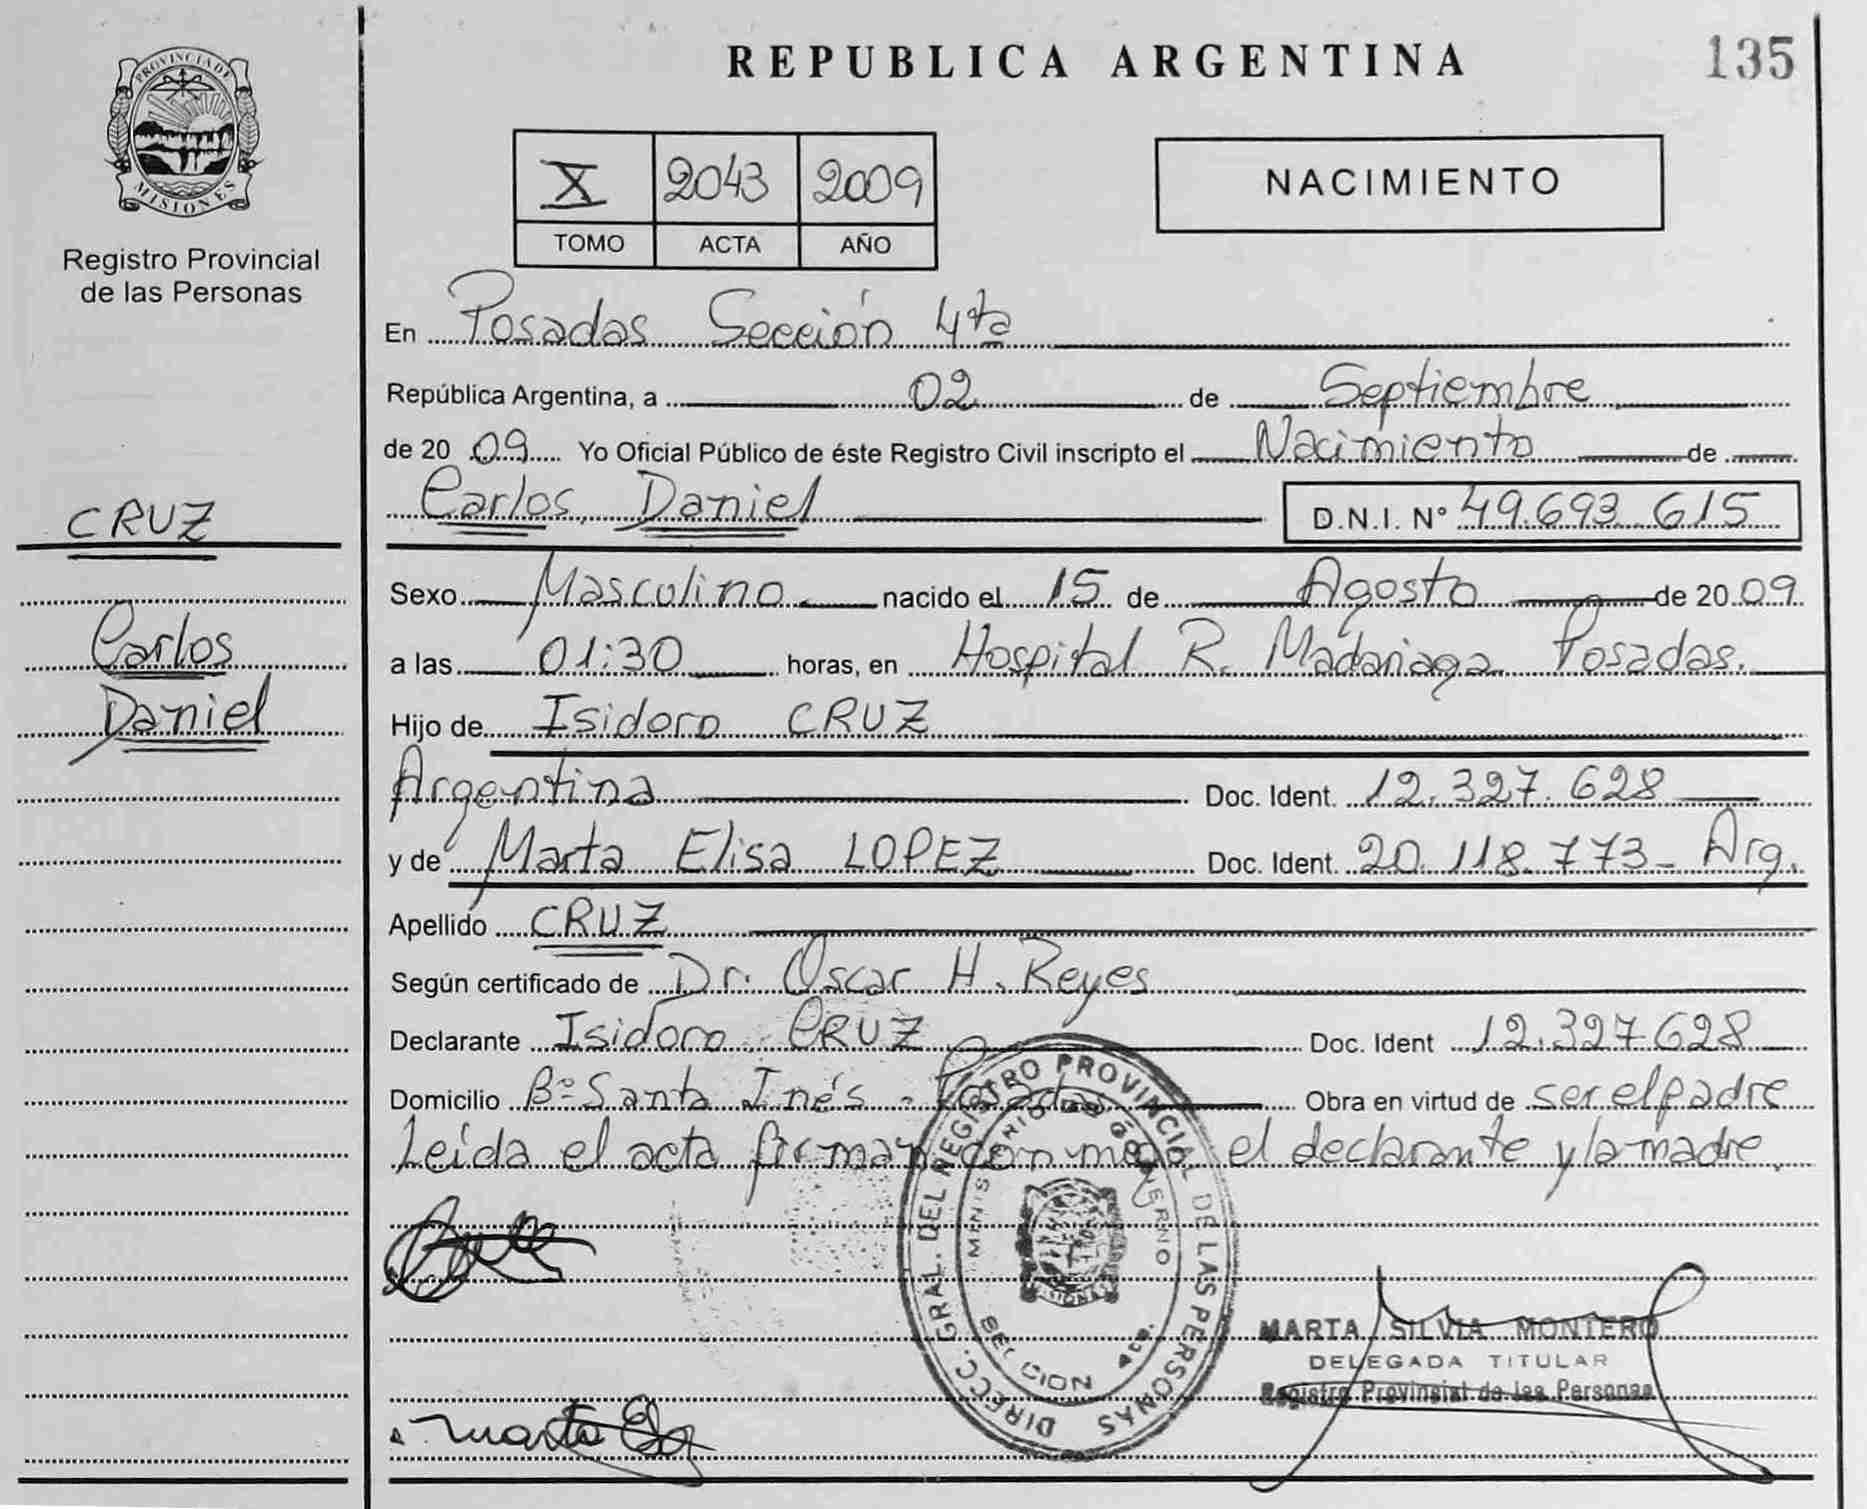 PROVINCIA DE
MISIONES
Registro Provincial
de las Personas
CRUZ
Carlos
Daniel
REPUBLICA ARGENTINA
135
X 2043 2009
TOMO ACTA AÑO
NACIMIENTO
En Posadas Sección 4ta
República Argentina, a 02 de Septiembre
de 20 09 Yo Oficial Público de éste Registro Civil inscripto el Nacimiento de
Carlos Daniel D.N.I. Nº 49.693.615
Sexo Masculino nacido el 15 de Agosto de 20 09
a las 01:30 horas, en Hospital R. Madariaga Posadas.
Hijo de Isidoro CRUZ
Argentina Doc. Ident. 12.327.628
y de Marta Elisa LOPEZ Doc. Ident. 20.118.773- Arg.
Apellido CRUZ
Según certificado de Dr. Oscar H. Reyes
Declarante Isidoro CRUZ Doc. Ident 12.327628
Domicilio Bº Santa Inés - Posadas Obra en virtud de ser el padre
Leída el acta firman con migo el declarante y la madre.
DIRECC. GRAL. DEL REGISTRO PROVINCIAL DE LAS PERSONAS
MINISTERIO DE GOBIERNO
SECCION 4ta.
MARTA SILVIA MONTERO
DELEGADA TITULAR
Registro Provincial de las Personas
Marta